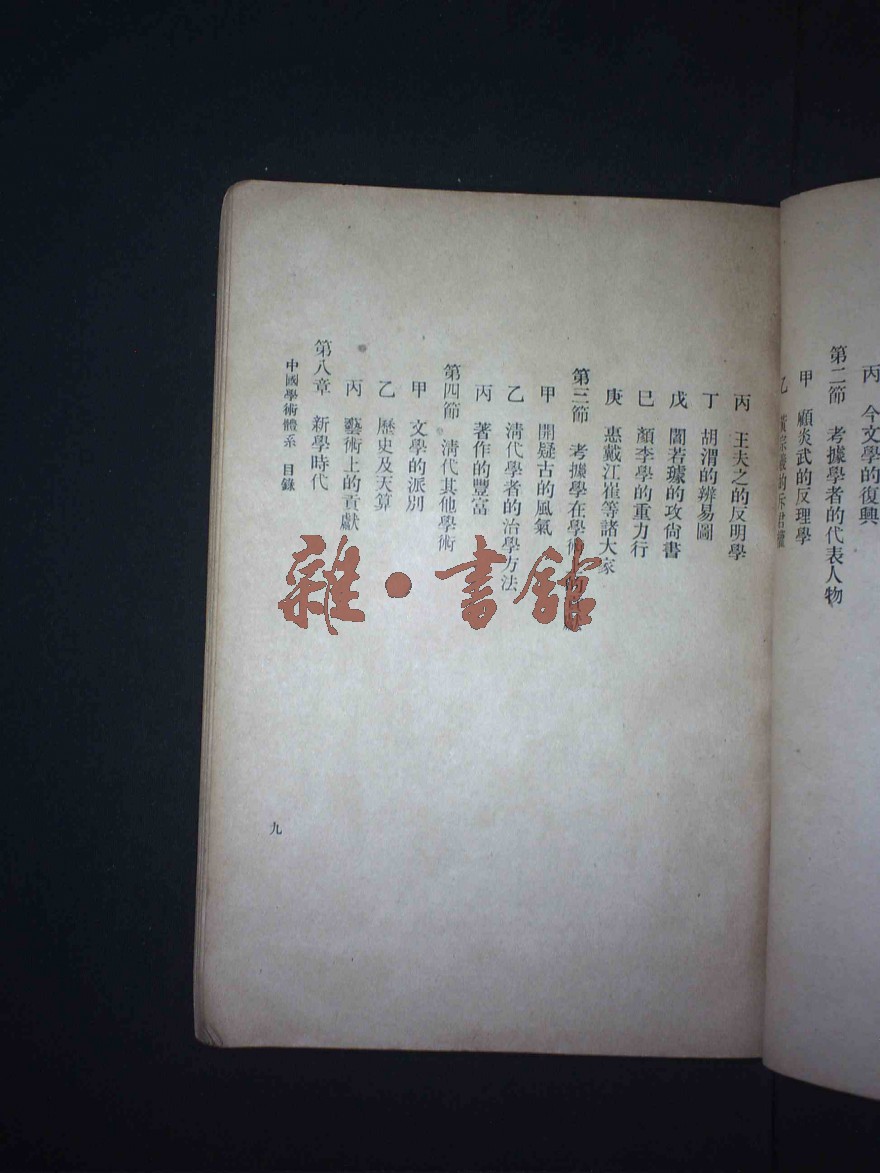 丙　今文學的復興
第二節　考據學者的代表人物
甲　顧炎武的反理學
乙
丙　王夫之的反明學
丁　胡渭的辨易圖
戊　閻若璩的攻尙書
巳　顏李學的重力行
庚　惠戴江崔等諸大家
第三節　考據學在學術
甲　開疑古的風氣
乙　淸代學者的治學方法
丙　著作的豐富
第四節　淸代其他學術
甲　文學的派別
乙　歷史及天算
丙　藝術上的貢獻
第八章　新學時代
中國學術體系　目錄
九
雜·書館